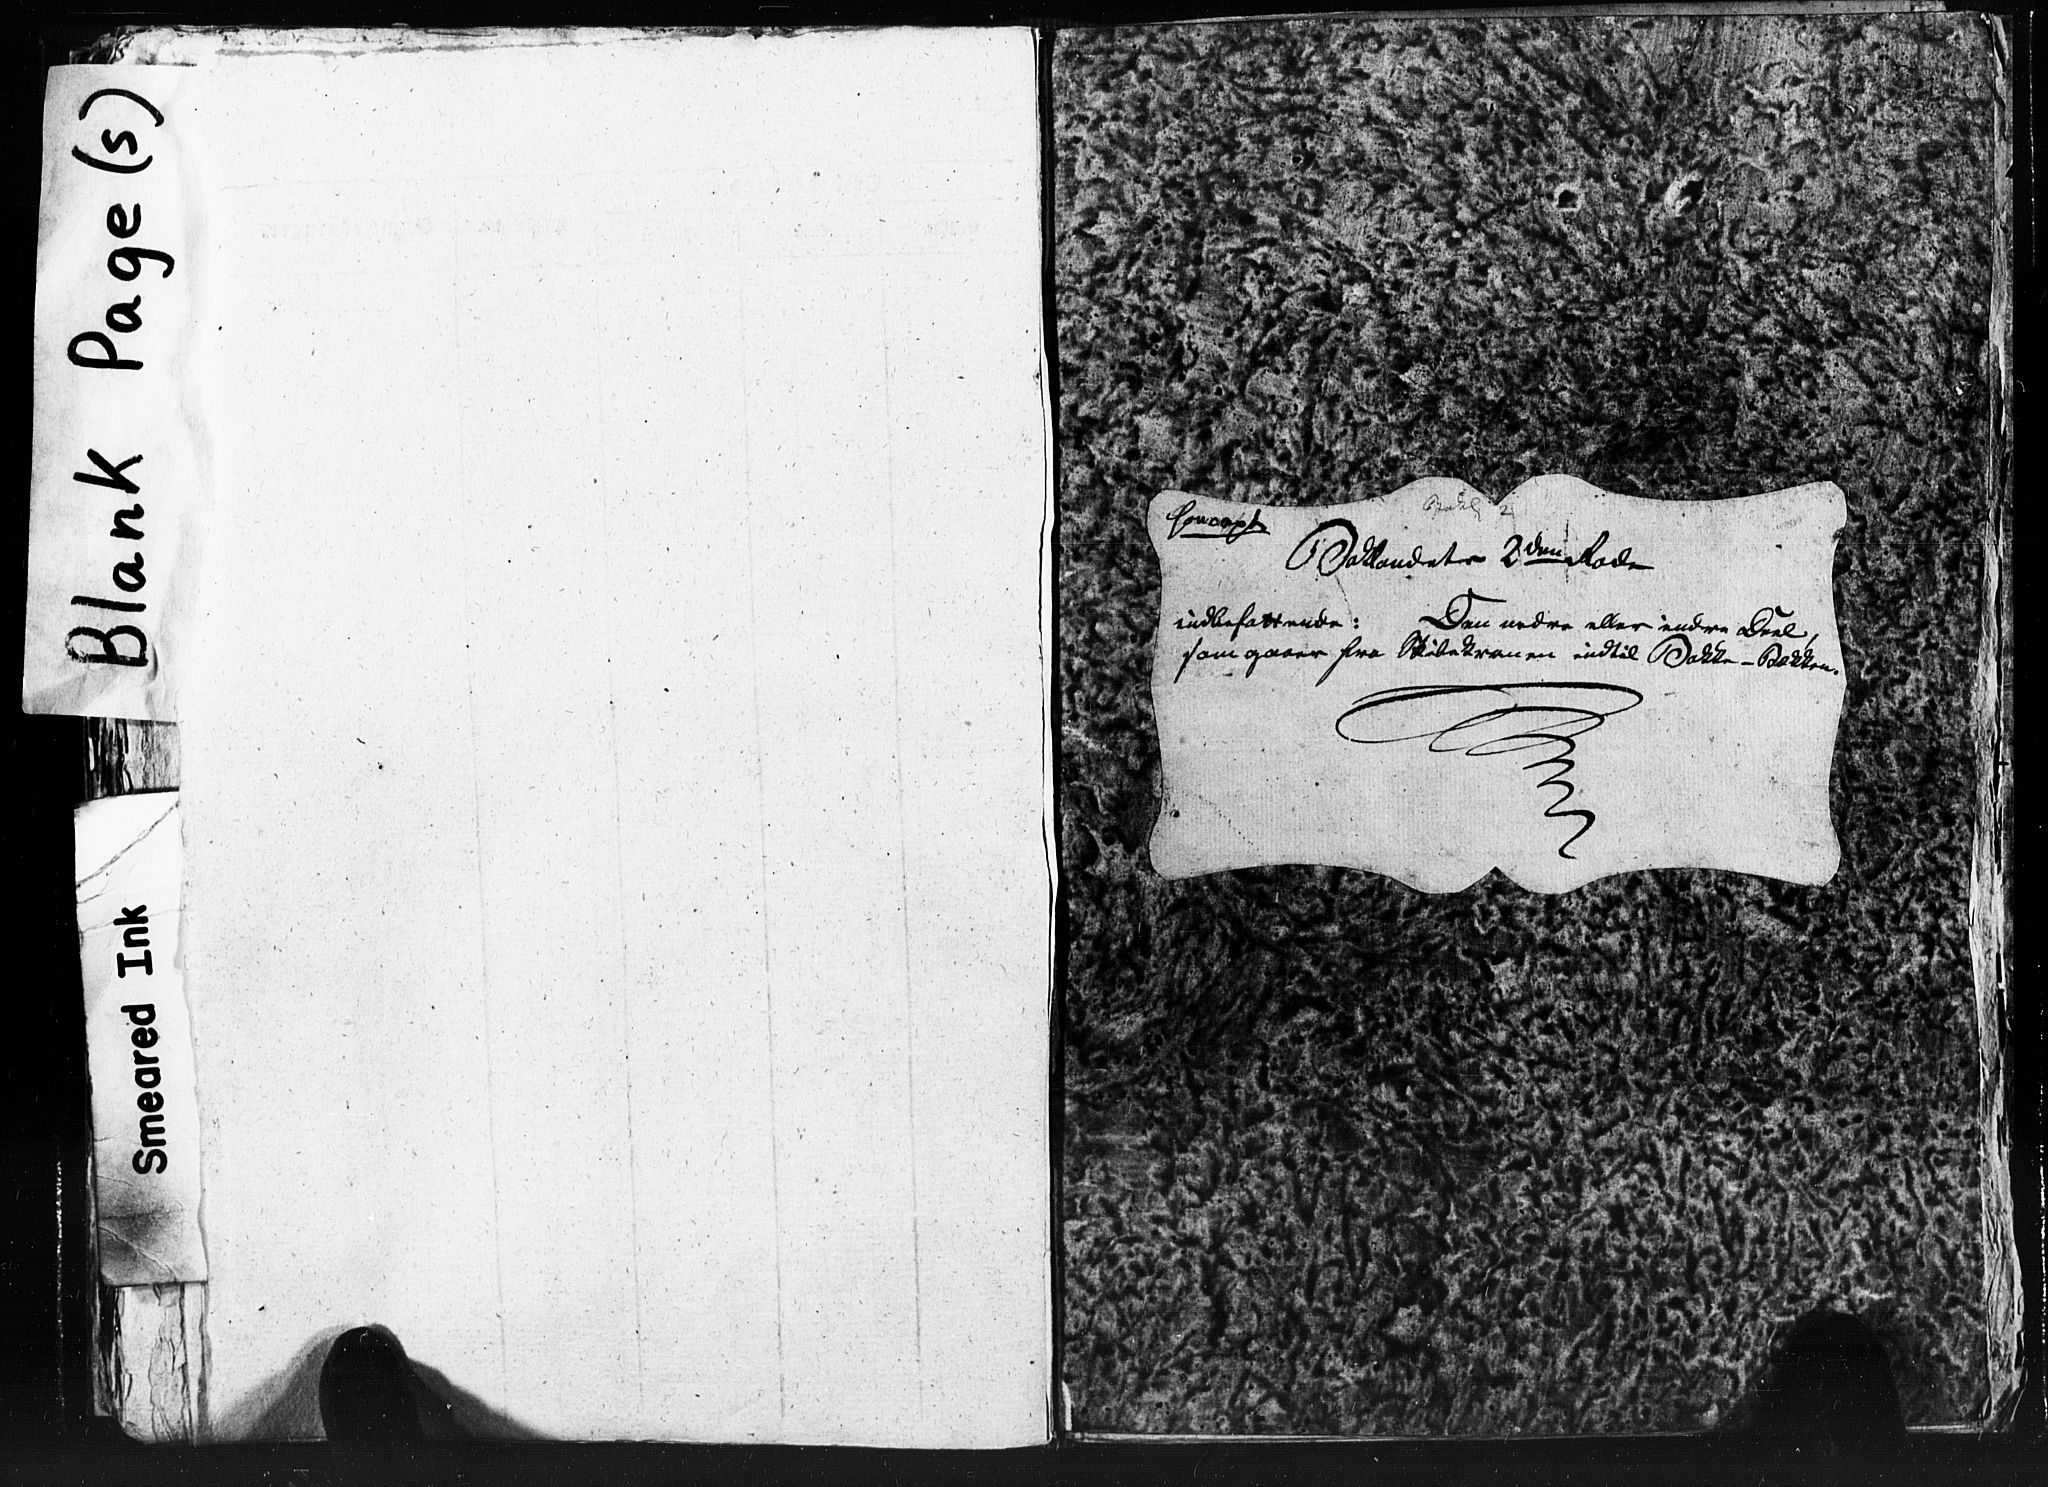 Blank Page(s)
Smeared Ink
Concept
Baklandets 2den Rode
indbefattende: Den nedre eller indre Deel,
som gaaer fra Skibskranen indtil Bakke-Bækken.